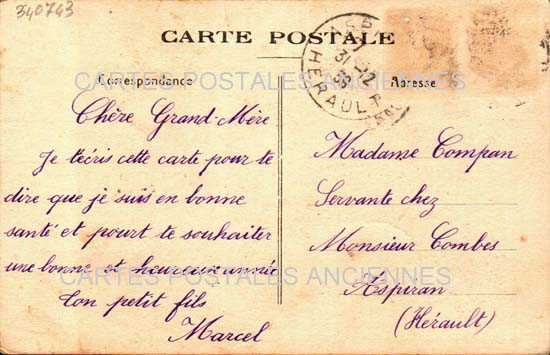 340743
CARTE POSTALE
Correspondance
Adresse
31-12
38
HERAULT
CARTES POSTALES ANCIENNES
Chère Grand-Mère
Je t'écris cette carte pour te
dire que je suis en bonne
santé et pourt te souhaiter
une bonne et heureuse année
Ton petit fils
Marcel
Madame Compan
Servante chez
Monsieur Combes
Aspiran
(Hérault)
CARTES POSTALES ANCIENNES